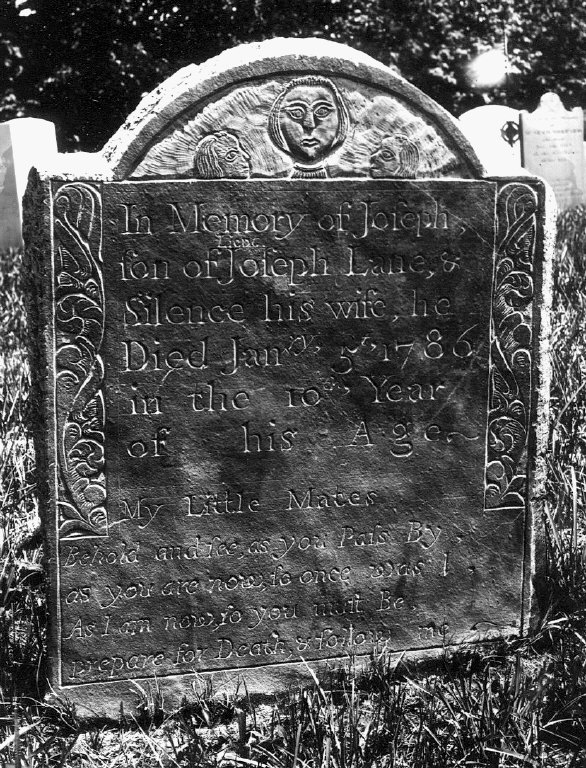 In Memory of Joſeph,
ſon of Lieut. Joſeph Lane, &
Silence his wife, he
Died Janry. 5th, 1786
in the 10th, Year
of his Age~
My Little Mates
Behold and ſee, as you Paſs By,
as you are now, ſo once was I,
As I am now, ſo you muſt Be,
prepare for Death, & follow me